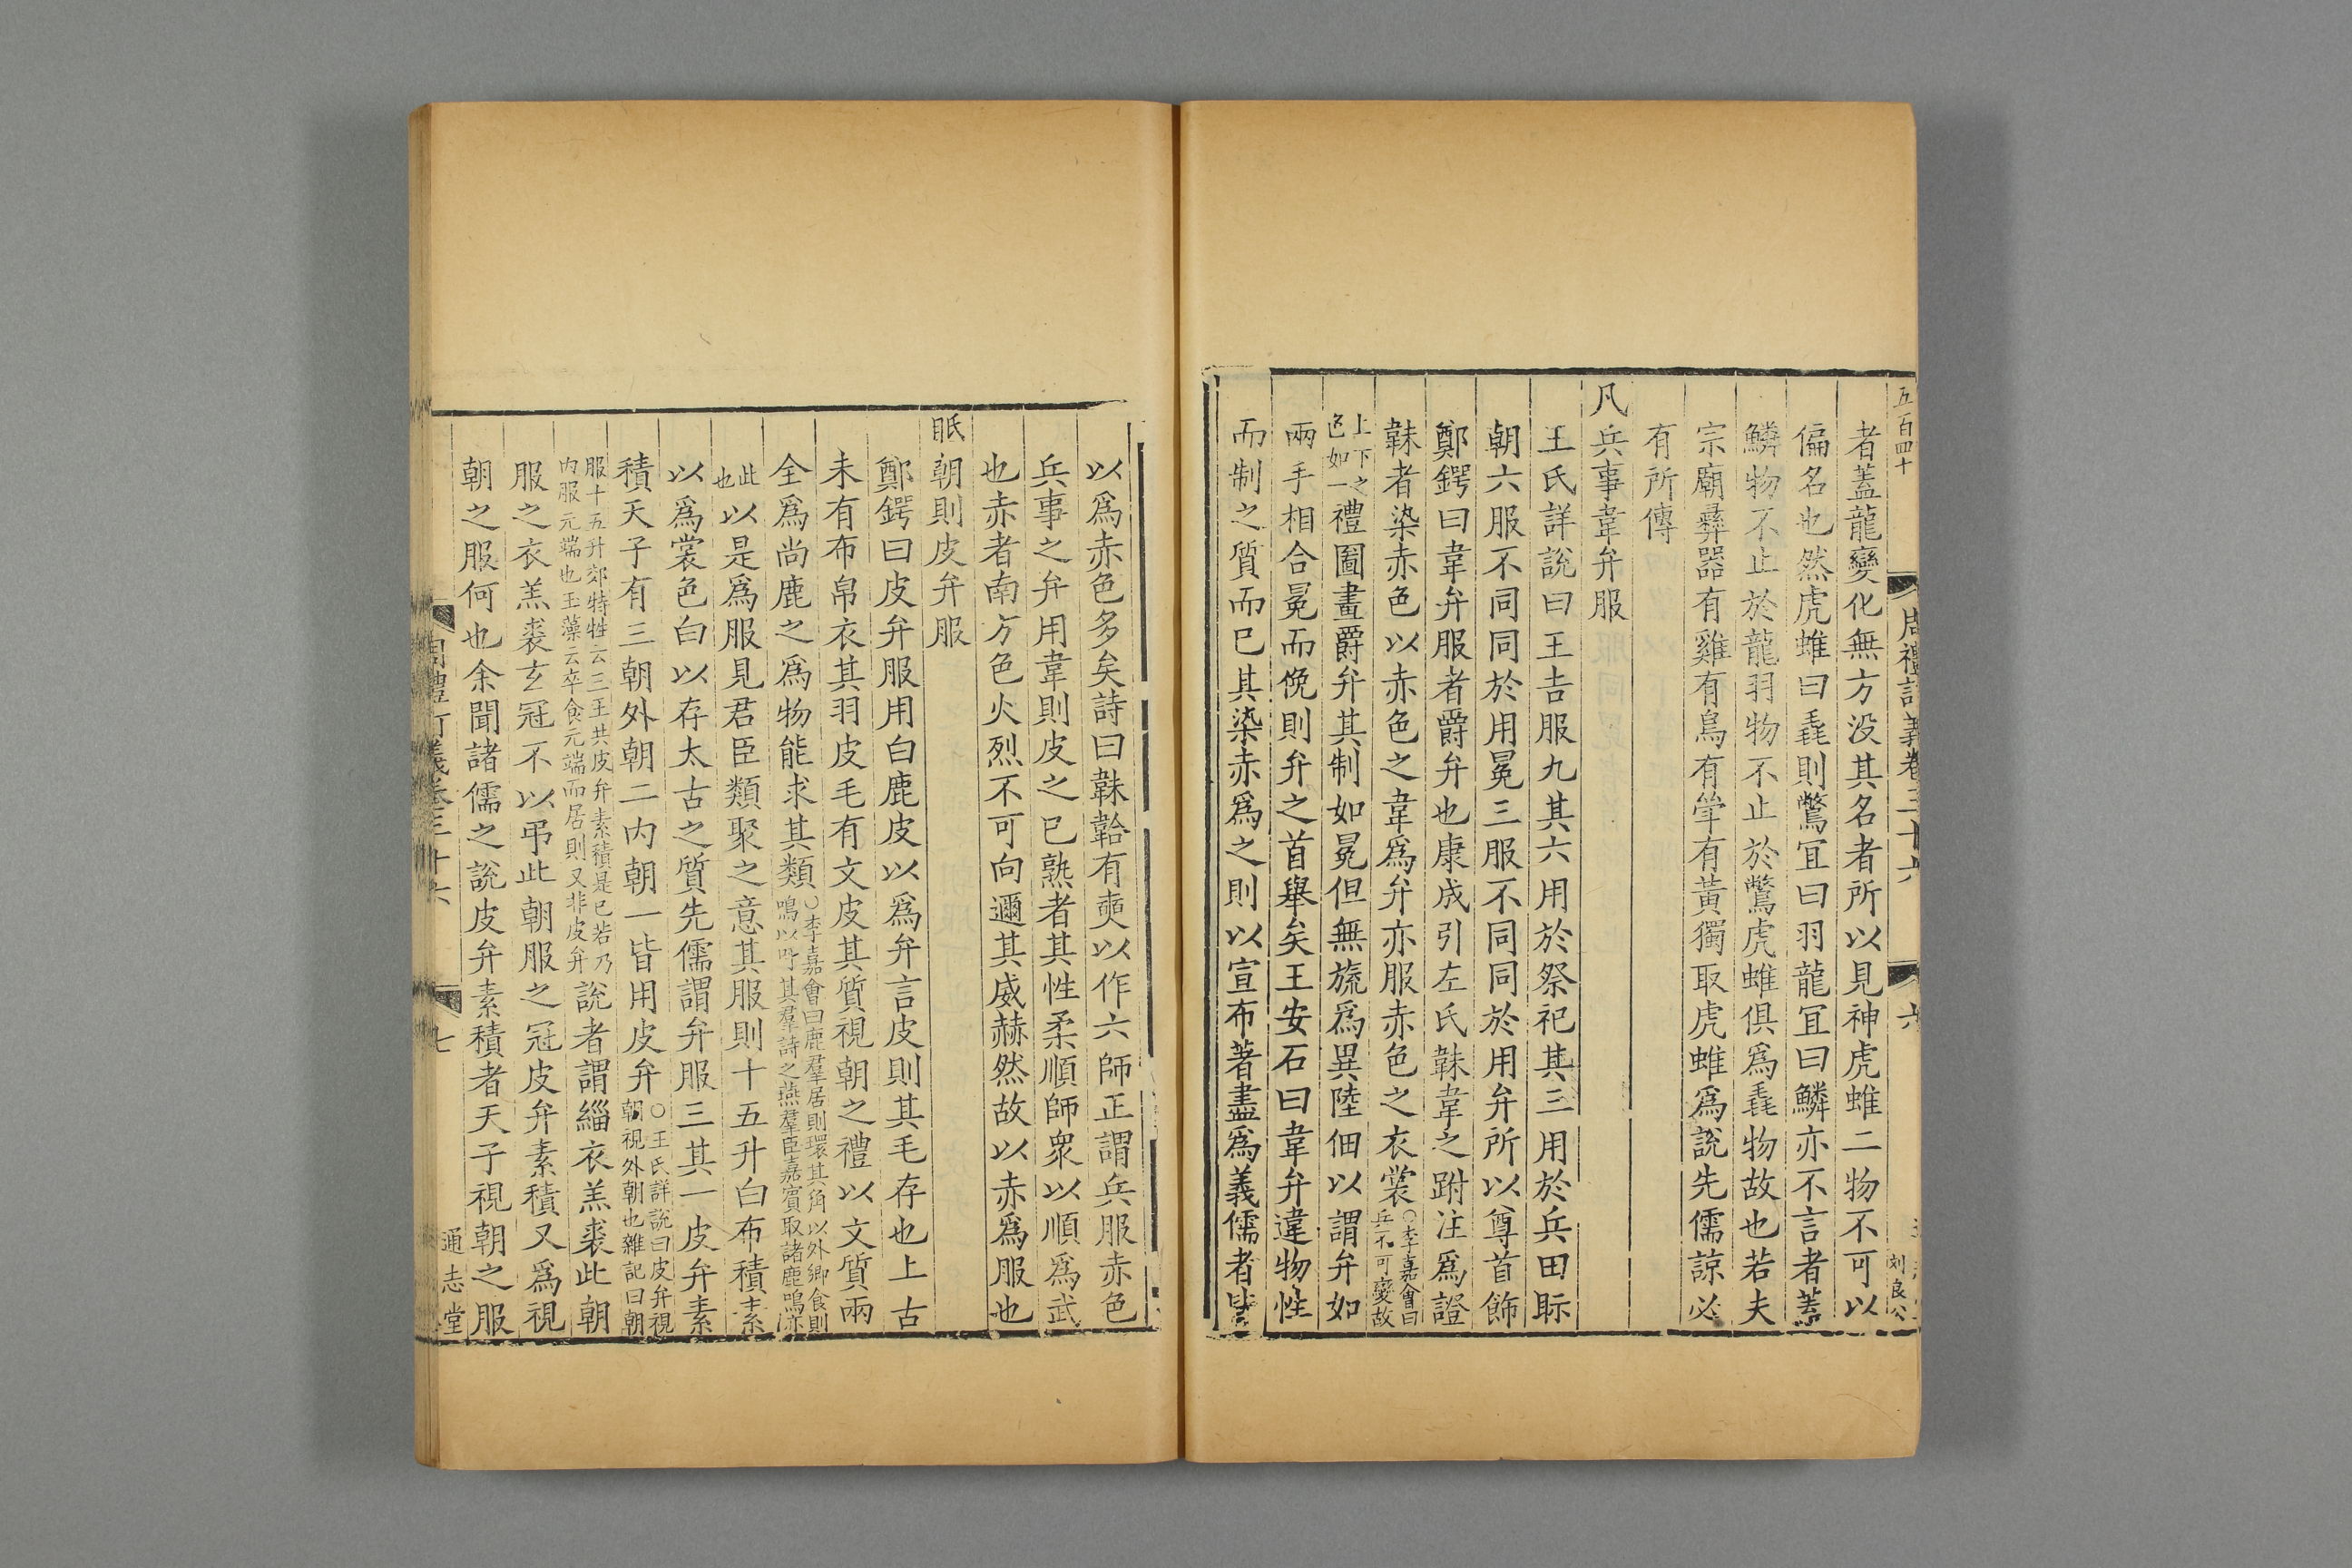 五百四十
周禮訂義卷三十六
六
刘良公
者蓋龍變化無方没其名者所以見神虎蜼二物不可以
偏名也然虎蜼曰毳則鷩冝曰羽龍冝曰鱗亦不言者蓋
鱗物不止於龍羽物不止於鷩虎蜼俱爲毳物故也若夫
宗廟彞器有雞有鳥有斝有黃獨取虎蜼爲說先儒諒必
有所傳
凡兵事韋弁服
王氏詳說曰王吉服九其六用於祭祀其三用於兵田眎
朝六服不同同於用冕三服不同同於用弁所以尊首飾
鄭鍔曰韋弁服者爵弁也康成引左氏韎韋之跗注爲證
韎者染赤色以赤色之韋爲弁亦服赤色之衣裳○李嘉會曰兵不可變故
上下之色如一禮圖畫爵弁其制如冕但無旒爲異陸佃以謂弁如
兩手相合冕而俛則弁之首舉矣王安石曰韋弁違物性
而制之質而已其染赤爲之則以宣布著盡爲義儒者皆
以爲赤色多矣詩曰韎韐有奭以作六師正謂兵服赤色
兵事之弁用韋則皮之已熟者其性柔順師衆以順爲武
也赤者南方色火烈不可向邇其威赫然故以赤爲服也
眂朝則皮弁服
鄭鍔曰皮弁服用白鹿皮以爲弁言皮則其毛存也上古
未有布帛衣其羽皮毛有文皮其質視朝之禮以文質兩
全爲尚鹿之爲物能求其類○李嘉會曰鹿羣居則環其角以外卿食則鳴以呼其羣詩之燕羣臣嘉賓取諸鹿鳴亦
此也以是爲服見君臣類聚之意其服則十五升白布積素
以爲裳色白以存太古之質先儒謂弁服三其一皮弁素
積天子有三朝外朝二内朝一皆用皮弁○王氏詳說曰皮弁視朝視外朝也雜記曰朝
服十五升郊特牲云三王共皮弁素積是已若乃内服元端也玉藻云卒食元端而居則又非皮弁說者謂緇衣羔裘此朝
服之衣羔裘玄冠不以弔此朝服之冠皮弁素積又爲視
朝之服何也余聞諸儒之說皮弁素積者天子視朝之服
周禮訂義卷三十六
七
通志堂